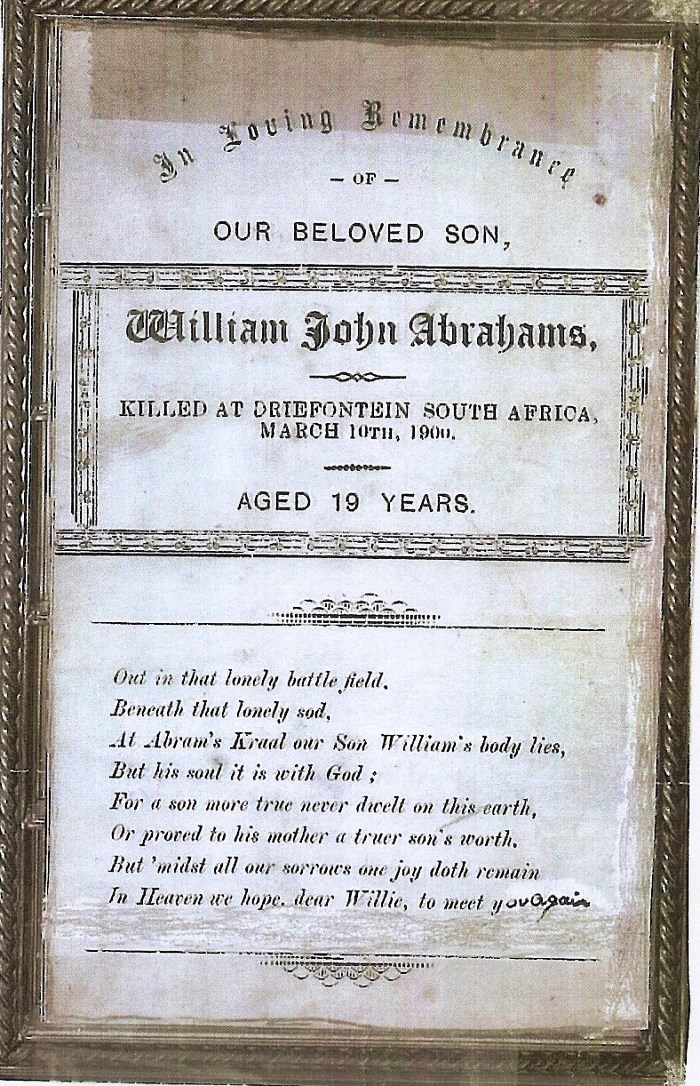 In Loving Remembrance
— OF —
OUR BELOVED SON,
William John Abrahams,
KILLED AT DRIEFONTEIN SOUTH AFRICA,
MARCH 10TH, 1900.
AGED 19 YEARS.
Out in that lonely battle field,
Beneath that lonely sod,
At Abram's Kraal our Son William's body lies,
But his soul it is with God ;
For a son more true never dwelt on this earth,
Or proved to his mother a truer son's worth.
But 'midst all our sorrows one joy doth remain
In Heaven we hope. dear Willie, to meet you again